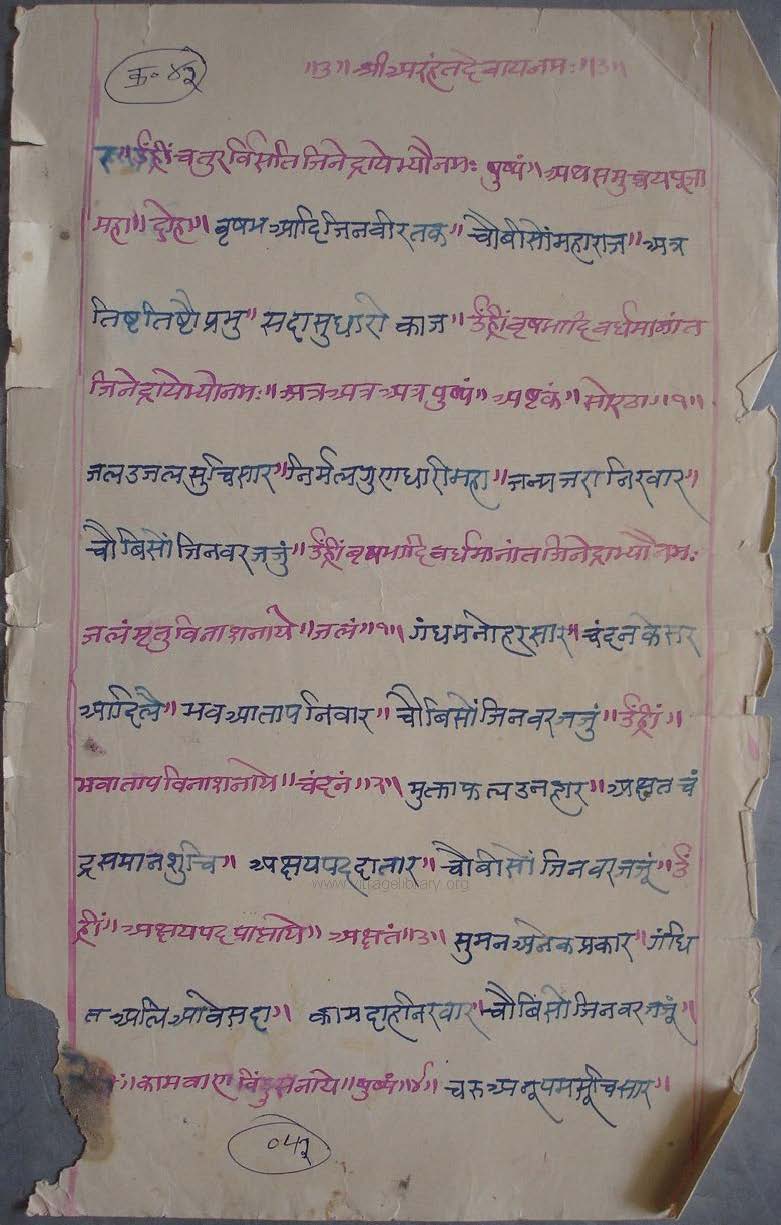 क॰ ४२
॥३॥ श्रीअरहंतदेवायनमः॥३॥
ॐह्रीं चतुरविंसति जिनेद्रायेभ्यौनमः पुष्पं॥ अथसमुच्चयपूजा
महा॥ दोहा॥ वृषभ आदि जिनवीर तक॥ चौबीसों महाराज॥ अत्र
तिष्ट तिष्टौ प्रभु॥ सदा सुधारो काज॥ ॐह्रीं वृषभादि वर्धमानांत
जिनेद्रायेभ्योनमः॥ अत्र अत्र अत्र पुष्पं॥ अष्टकं॥ सोरठा॥१॥
जल उजल सुचिसार॥ निर्मल गुणधारी महा॥ जन्म जरा निरवार॥
चौबिसों जिनवर जजुं॥ ॐह्रीं वृषभादि वर्धमानांत जिनेद्राभ्यौनमः
जलं मृतु विनाशनाये॥ जलं॥१॥ गंध मनोहर सार॥ चंदन केसर
आदि लै॥ भव आताप निवार॥ चौबिसों जिनवर जजुं॥ ॐह्रीं॥
भवाताप विनाशनाये॥ चंदनं॥२॥ मुक्ताफल उनहार॥ अक्षत चं
द्र समान शुचि॥ अक्षयपद दातार॥ चौबीसों जिनवर जजूं॥ ॐ
ह्रीं॥ अक्षयपद प्राप्ताये॥ अक्षतं॥३॥ सुमन अनेक प्रकार॥ गंधि
त अलि आवे सदा॥ काम दाह निरवार॥ चौबिसों जिनवर जजूं॥
॥ कामवाण विंदुसनाये॥ पुष्पं॥४॥ चरु अनूपम सूचिसार॥
०५२
www.vitragelibrary.org